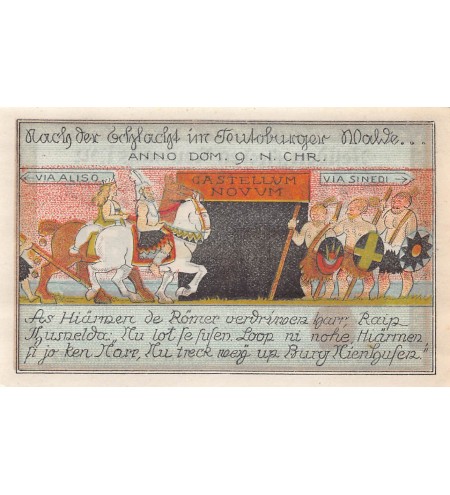 Nach der Schlacht im Teutoburger Walde...
ANNO DOM. 9. N. CHR.
VIA ALISO
CASTELLUM
NOVUM
VIA SINEDI
As Hiärmen de Römer verdriwen harr, Raip
Thusnelda: "Nu lot se susen. Loop ni nohe, Hiärmen
si jo ken Narr, Nu treck weg up Burg Nienhusen."